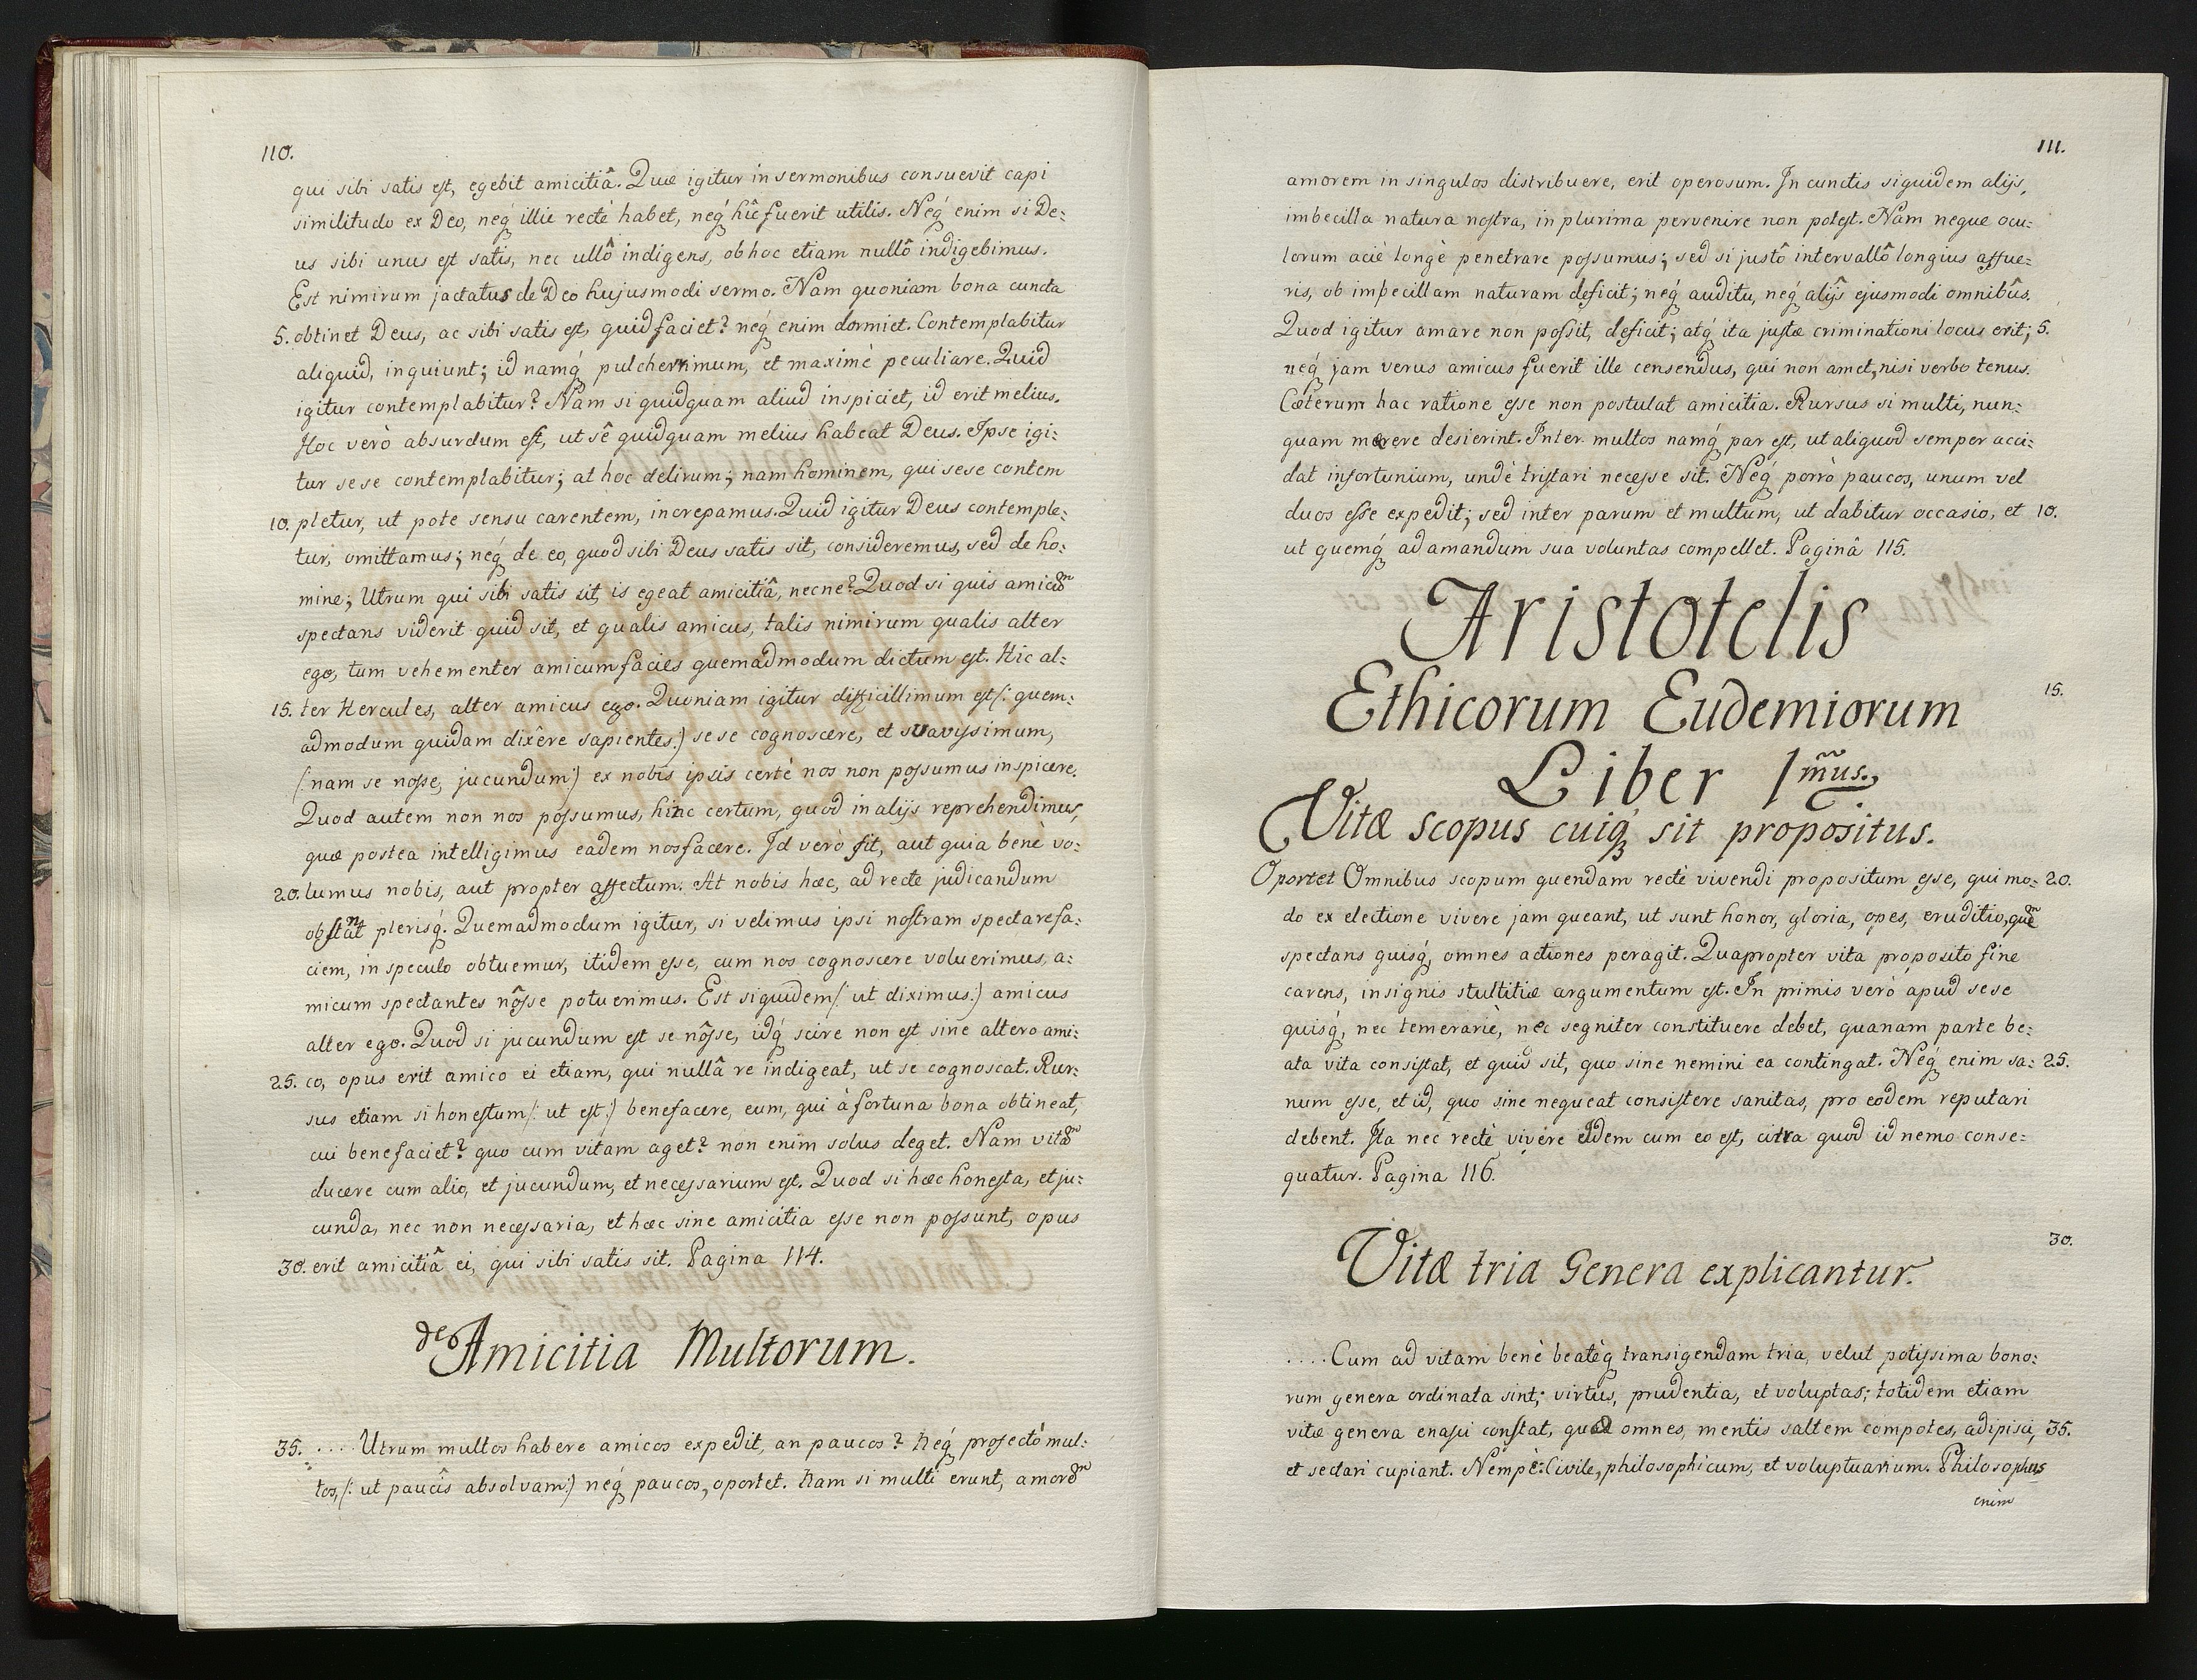 110.
qui sibi satis est, egebit amicitiâ. Quæ igitur in sermonibus consuevit capi
similitudo ex Deo, neq́ illic rectè habet, neq́ hîc fuerit utilis. Neq́ enim si De:
us sibi unus est satis, nec ullô indigens, ob hoc etiam nullô indigebimus.
Est nimirum jactatus de Deo hujusmodi sermo. Nam quoniam bona cuncta
5. obtinet Deus, ac sibi satis est, quid faciet? neq́ enim dormiet. Contemplabitur
aliquid, inquiunt; id namq́ pulcherrimum, et maximè peculiare. Quid
igitur contemplabitur? Nam si quidquam aliud inspiciet, id erit melius.
Hoc verò absurdum est, ut sê quidquam melius habeat Deus. Ipse igi:
tur sese contemplabitur; at hoc delirum; nam hominem, qui sese contem
10. pletur, ut pote sensu carentem, increpamus. Quid igitur Deus contemple:
tur, omittamus; neq́ de eo, quod sibi Deus satis sit, consideremus, sed de ho:
mine; Utrum qui sibi satis sit, is egeat amicitiâ, necne? Quod si quis amicũm
spectans viderit quid sit, et qualis amicus, talis nimirum qualis alter
ego, tum vehementer amicum facies quemadmodum dictum est. Hic al:
15. ter Hercules, alter amicus ego. Quoniam igitur difficillimum est (: quem:
admodum quidam dixêre sapientes:) sese cognoscere, et suavissimum,
(: nam se nosse, jucundum:) ex nobis ipsis certè nos non possumus inspicere.
Quod autem non nos possumus, hinc certum, quod in alijs reprehendimus,
quæ postea intelligimus eadem nos facere. Id verò fit, aut quia benè vo:
20. lumus nobis, aut propter affectum. At nobis hæc, ad recte judicandum
obstant plerisq́. Quemadmodum igitur, si velimus ipsi nostram spectare fa:
ciem, in speculo obtuemur, itidem esse, cum nos cognoscere voluerimus, a:
micum spectantes nôsse potuerimus. Est siquidem (: ut diximus:) amicus
alter ego. Quod si jucundum est se nôsse, idq́ scire non est sine altero ami:
25. co, opus erit amico ei etiam, qui nullâ re indigeat, ut se cognoscat. Rur:
sus etiam si honestum (: ut est:) benefacere, eum, qui à fortuna bona obtineat,
cui benefaciet? quo cum vitam aget? non enim solus deget. Nam vitãm
ducere cum alio, et jucundum, et necessarium est. Quod si hæc honesta, et ju:
cunda, nec non necessaria, et hæc sine amicitia esse non possunt, opus
30. erit amicitiâ ei, qui sibi satis sit. Pagina 114.
de Amicitia Multorum.
35. .... Utrum multos habere amicos expedit, an paucos? Neq́ profectò mul:
tos, (: ut paucîs absolvam:) neq́ paucos, oportet. Nam si multi erunt, amorẽm
111.
amorem in singulos distribuere, erit operosum. In cunctis siquidem alijs,
imbecilla natura nostra, in plurima pervenire non potest. Nam neque ocu:
lorum aciè longè penetrare possumus; sed si justô intervallô longius affue:
ris, ob imbecillam naturam deficit; neq́ auditu, neq́ alijs ejusmodi omnibûs.
Quod igitur amare non possit, deficit; atq́ ita justæ criminationi locus erit; 5.
neq́ jam verus amicus fuerit ille censendus, qui non amet, nisi verbo tenus.
Cæterum hac ratione esse non postulat amicitia. Rursus si multi, nun:
quam mærere desierint. Inter multos namq́ par est, ut aliquod semper acci:
dat infortunium, undè tristari necesse sit. Neq́ porrò paucos, unum vel
duos esse expedit; sed inter parum et multum, ut dabitur occasio, et 10.
ut quemq́ ad amandum sua voluntas compellet. Paginâ 115.
Aristotelis
Ethicorum Eudemiorum 15.
Liber 1m̃us.
Vitæ scopus cuiq́ sit propositus.
Oportet Omnibus scopum quendam rectè vivendi propositum esse, qui mo: 20.
do ex electione vivere jam queant, ut sunt honor, gloria, opes, eruditio, quẽm
spectans quisq́, omnes actiones peragit. Quapropter vita proposito fine
carens, insignis stultitiæ argumentum est. In primis verò apud sese
quisq́, nec temerariè, nec segniter constituere debet, quanam parte be:
ata vita consistat, et quid sit, quo sine nemini ea contingat. Neq́ enim sa: 25.
num esse, et id, quo sine nequeat consistere sanitas, pro eodem reputari
debent. Ita nec rectè vivere idem cum eo est, citra quod id nemo conse:
quatur. Pagina 116.
30.
Vitæ tria Genera explicantur.
.... Cum ad vitam benè beatèq́ transigendam tria, velut potissima bono:
rum genera ordinata sint; virtus, prudentia, et voluptas; totidem etiam
vitæ genera enasci constat, quæ omnes, mentis saltem compotes, adipisci, 35.
et sectari cupiant. Nempè: Civile, philosophicum, et voluptuarium. Philosophus
enim